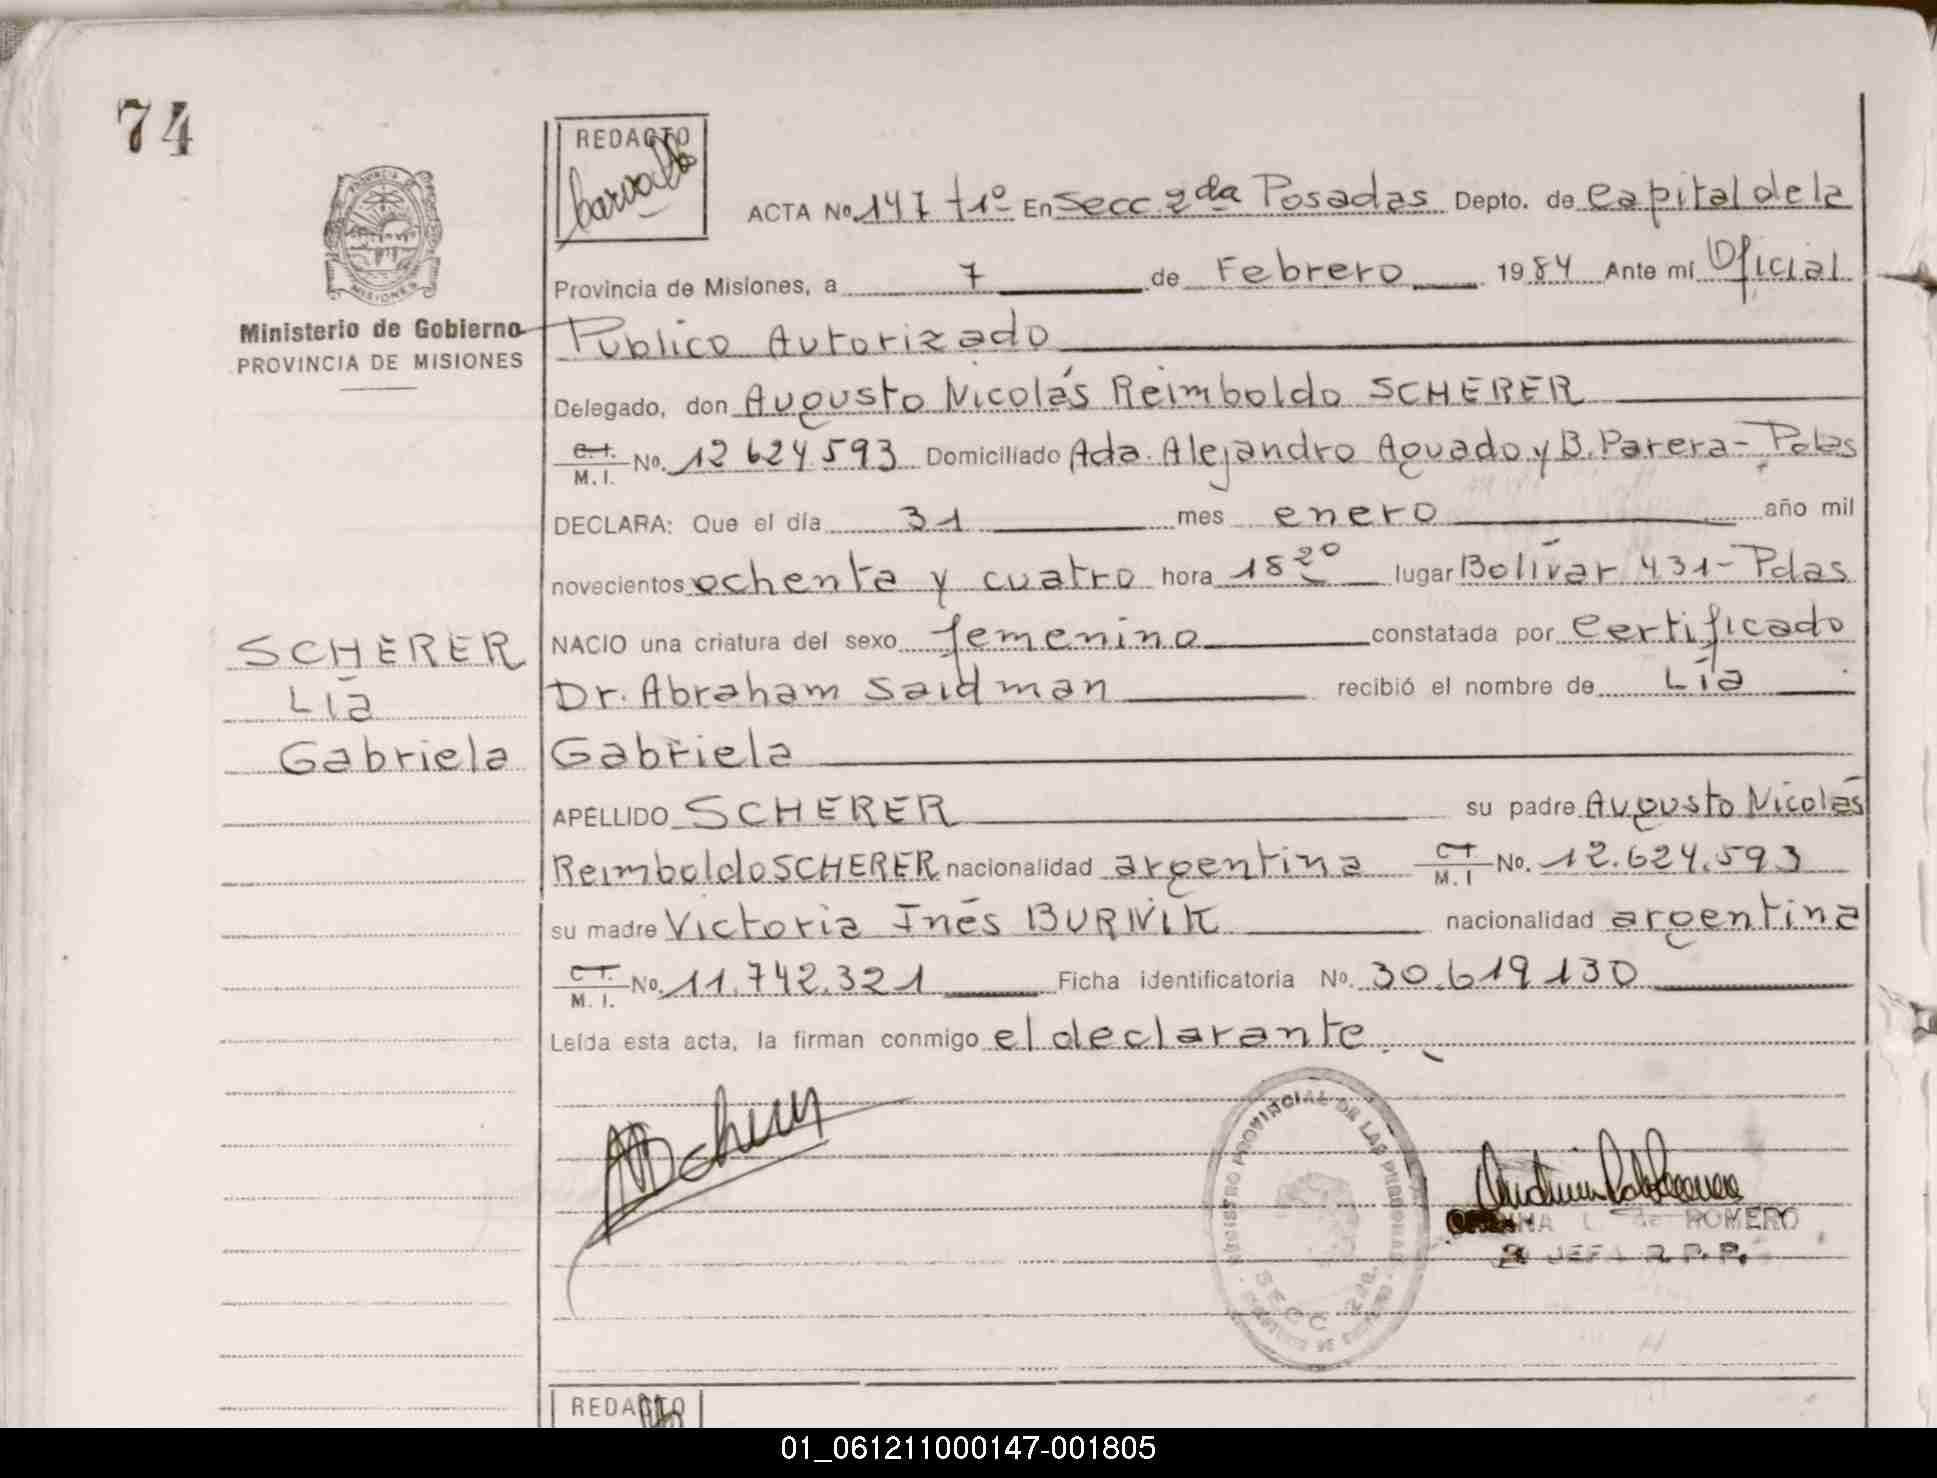 74
REDACTO
PROVINCIA DE
MISIONES
ACTA No. 147 t1º En Secc. 2da Posadas Depto. de Capital de la
Provincia de Misiones, a 7 de Febrero 1984 Ante mi Oficial
Ministerio de Gobierno
PROVINCIA DE MISIONES
Público Autorizado
Delegado, don Augusto Nicolás Reimboldo SCHERER
C.I. M.I. No. 12 624.593 Domiciliado Ada. Alejandro Aguado y B. Parera - Pdas
DECLARA: Que el día 31 mes enero año mil
novecientos ochenta y cuatro hora 18 20 lugar Bolívar 431 - Pdas
NACIO una criatura del sexo femenino constatada por certificado
Dr. Abraham Saidman recibió el nombre de Lía
Gabriela
SCHERER
Lía
Gabriela
APELLIDO SCHERER su padre Augusto Nicolás
Reimboldo SCHERER nacionalidad argentina C.I. M.I No. 12.624.593
su madre Victoria Inés BURNIK nacionalidad argentina
C.I. M.I. No. 11.742.321 Ficha identificatoria No. 30.619.130
Leída esta acta, la firman conmigo el declarante.
REGISTRO PROVINCIAL DE LAS PERSONAS
SECC. 2da.
L. de ROMERO
JEFA R.P.P.
REDACTO
01_061211000147-001805